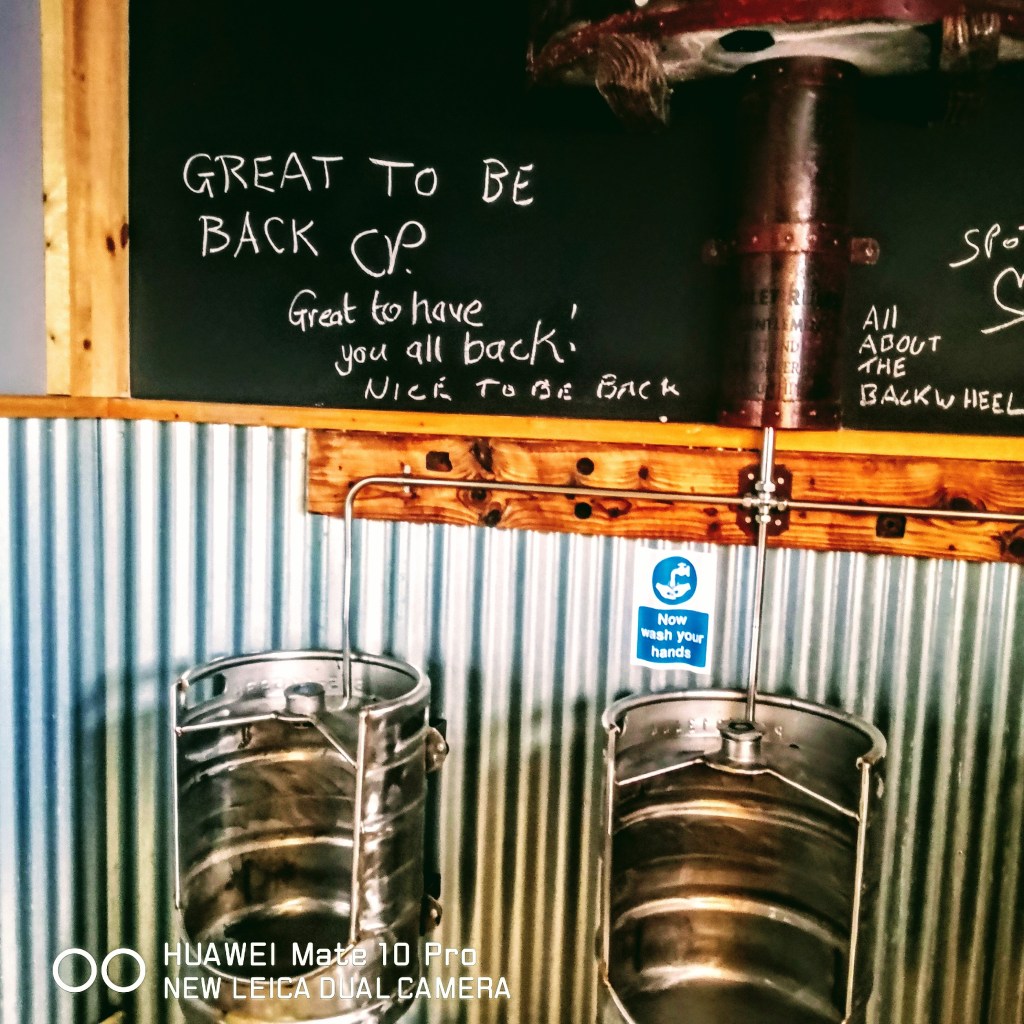 GREAT TO BE
BACK CP.
Great to have
you all back!
NICE TO BE BACK
SPOT
All
ABOUT
THE
BACKWHEEL
Now
wash your
hands
HUAWEI Mate 10 Pro
NEW LEICA DUAL CAMERA